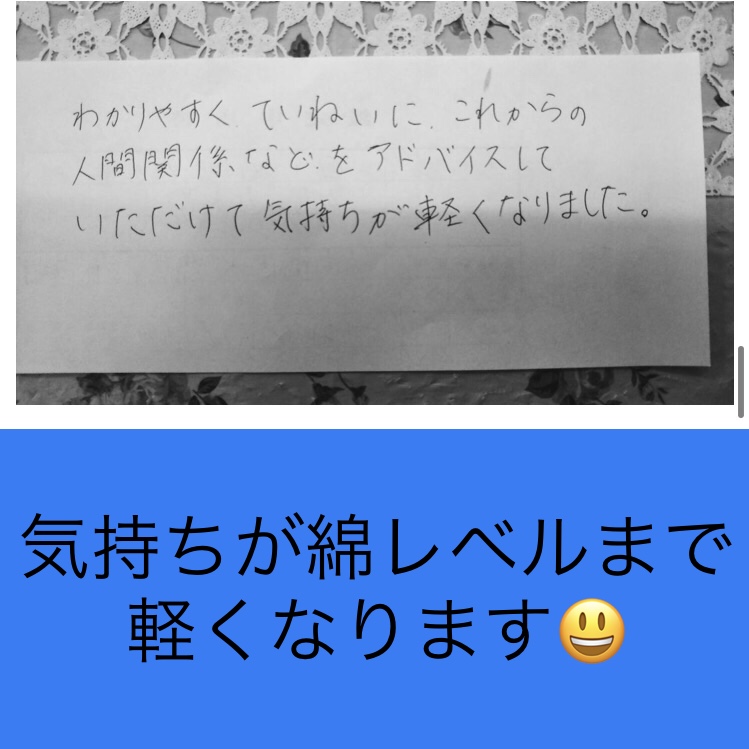 わかりやすく、ていねいに、これからの
人間関係などをアドバイスして
いただけて気持ちが軽くなりました。
気持ちが綿レベルまで
軽くなります😃